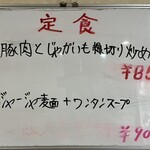 定食
豚肉とじゃがいも細切り炒め
¥85
ジャージャ麺+ワンタンスープ
¥90